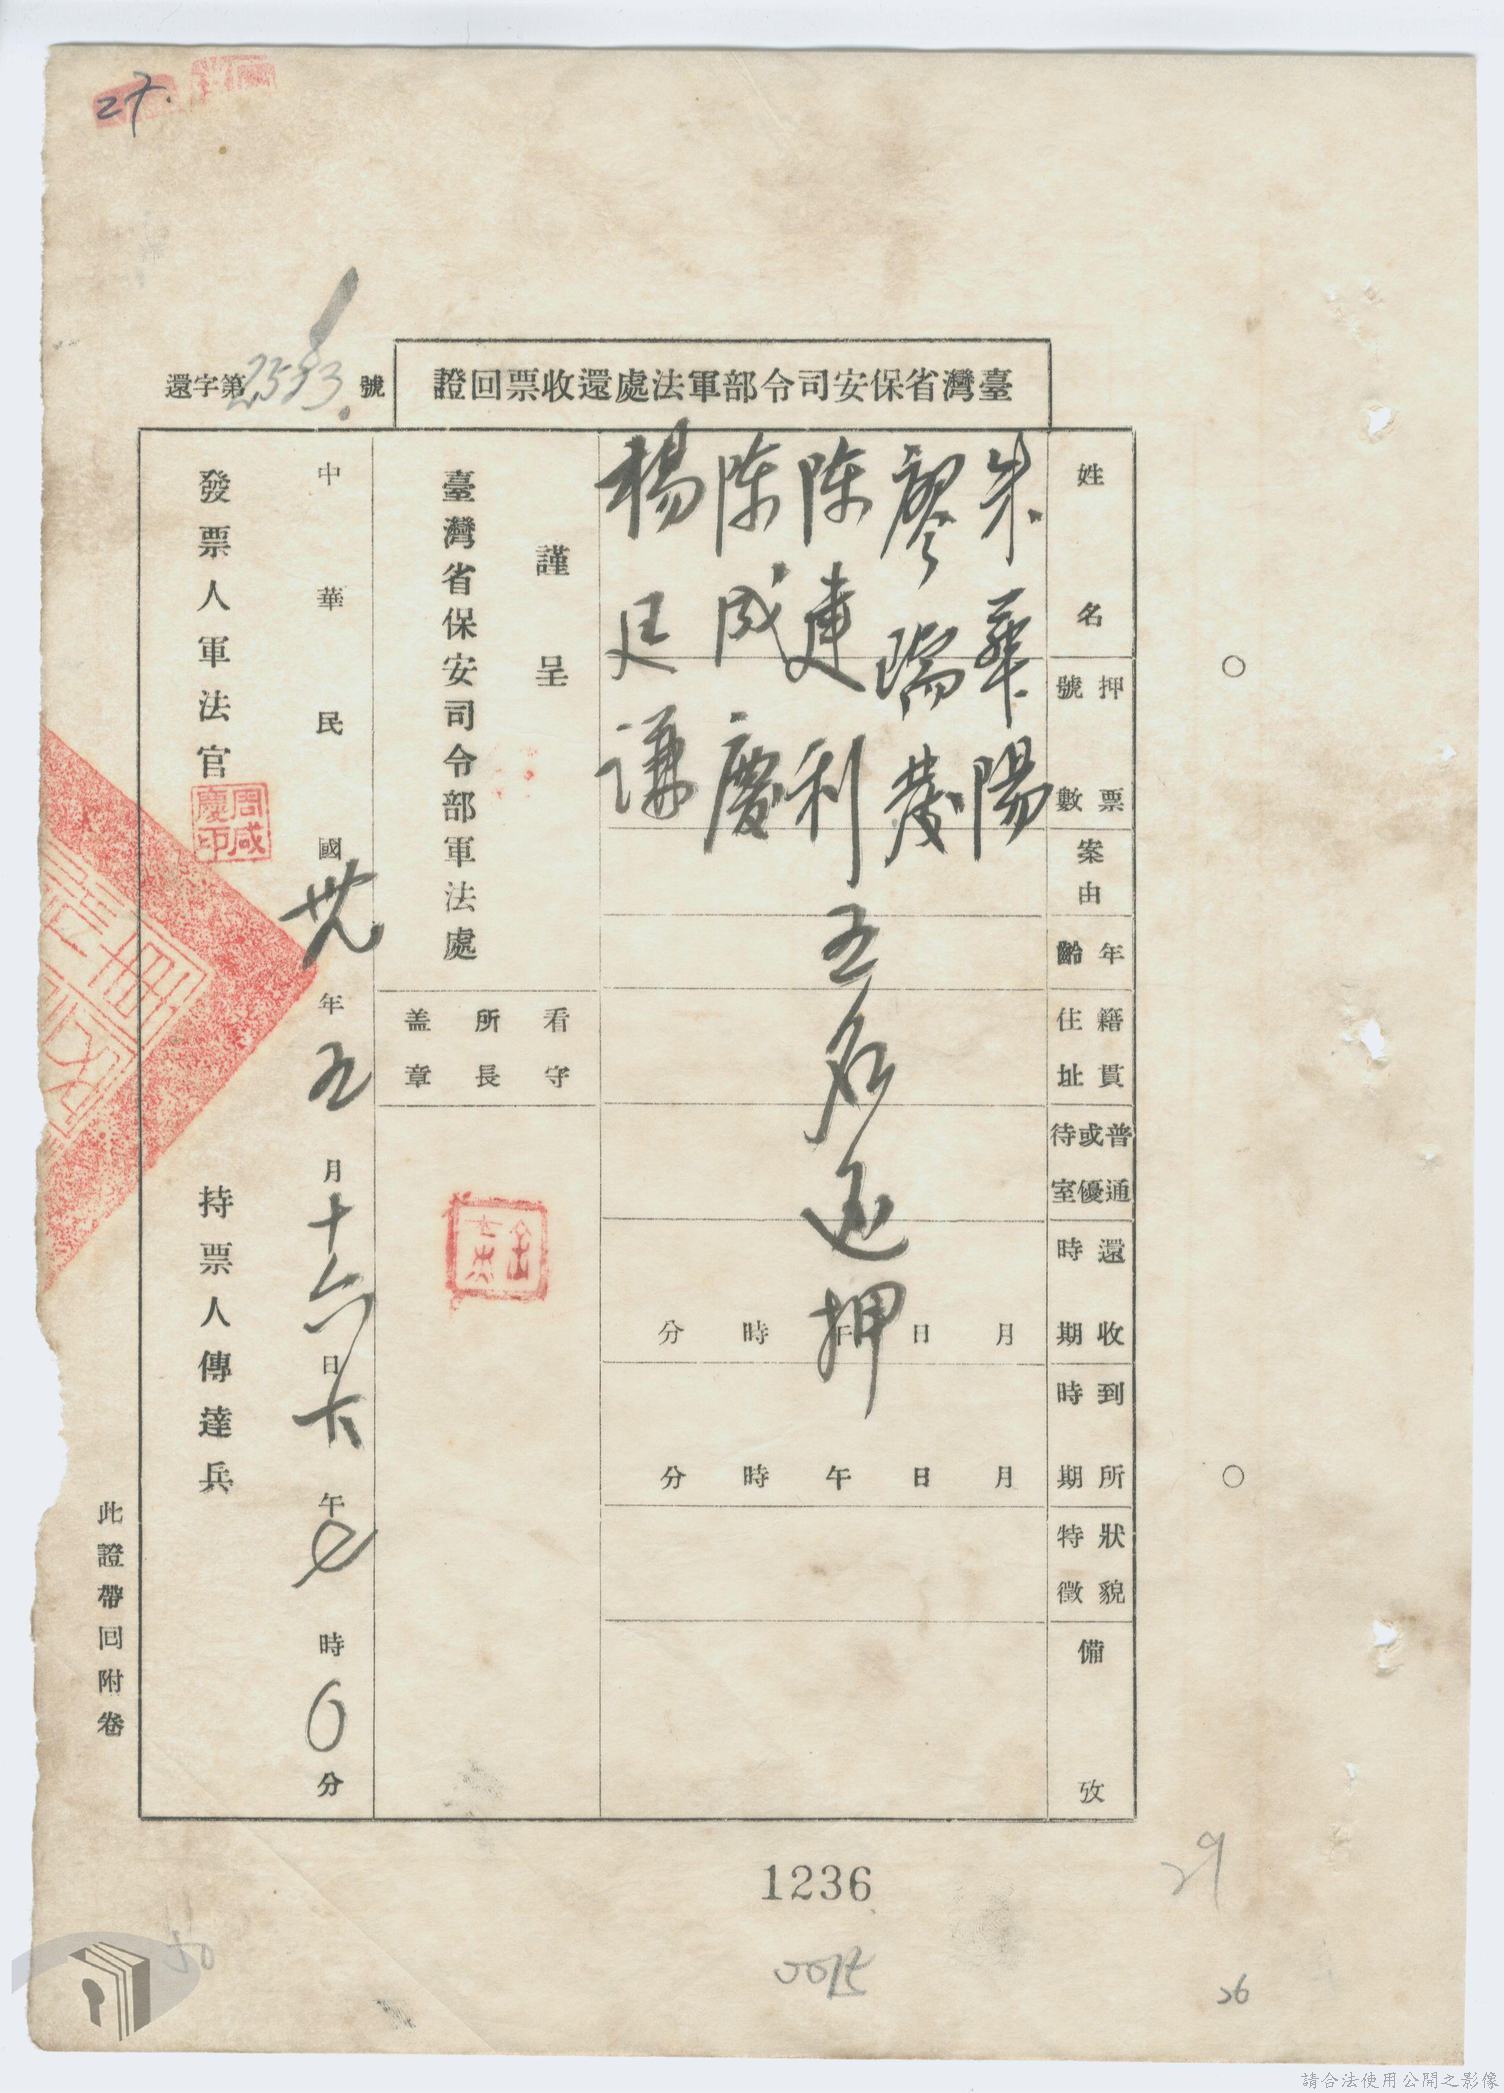 臺灣省保安司令部軍法處還收票回證
還字第2593號
姓名
押票號數
案由
年齡
籍貫住址
普通或優待室
還收時期
到所時期
狀貌特徵
備攷
朱華陽
廖瑞發
陳連利
陳成慶
楊廷謙
五名還押
月日午時分
月日午時分
謹呈
臺灣省保安司令部軍法處
看守所長盖章
中華民國卅九年五月十六日下午七時0分
發票人軍法官
周咸慶印
持票人傳達兵
此證帶回附卷
1236
29
26
50
請合法使用公開之影像